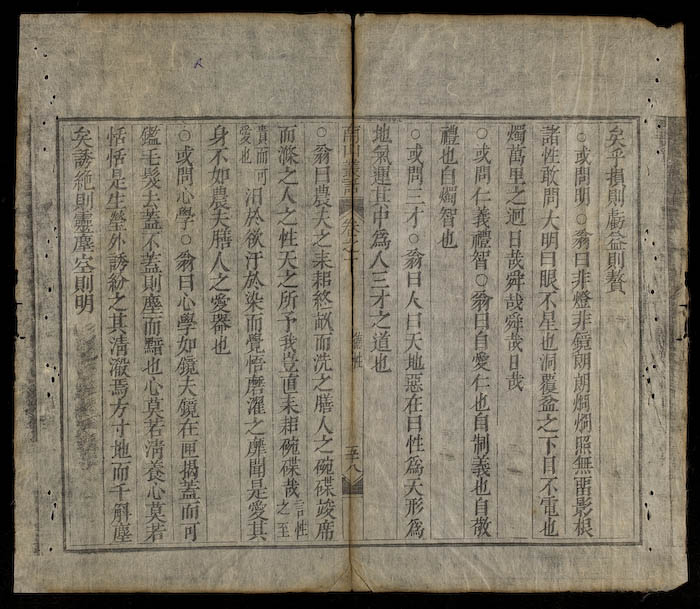 矣乎損則虧益則贅
○或問明○翁曰非燈非鏡朗朗烱烱照無畱影根
諸性敢問大明曰眼不星也洞覆盆之下目不電也
燭萬里之迥日哉舜哉舜哉日哉
○或問仁義禮智○翁曰自愛仁也自制義也自敬
禮也自燭智也
○或問三才○翁曰人曰天地惡在曰性爲天形爲
地氣運其中爲人三才之道也
卷之一
五八
○翁曰農夫之耒耜終畝而洗之膳人之碗碟竣席
而滌之人之性天之所予我豈直耒耜碗碟哉言性之至
貴而可愛也汨於欲汙於染而覺悟磨濯之靡聞是愛其
身不如農夫膳人之愛器也
○或問心學○翁曰心學如鏡夫鏡在匣揭蓋而可
鑑毛髮去蓋不蓋則塵而黯也心莫若清養心莫若
恬恬是生瑩外誘紛之其清澱焉方寸地而千斛塵
矣誘絶則靈塵空則明